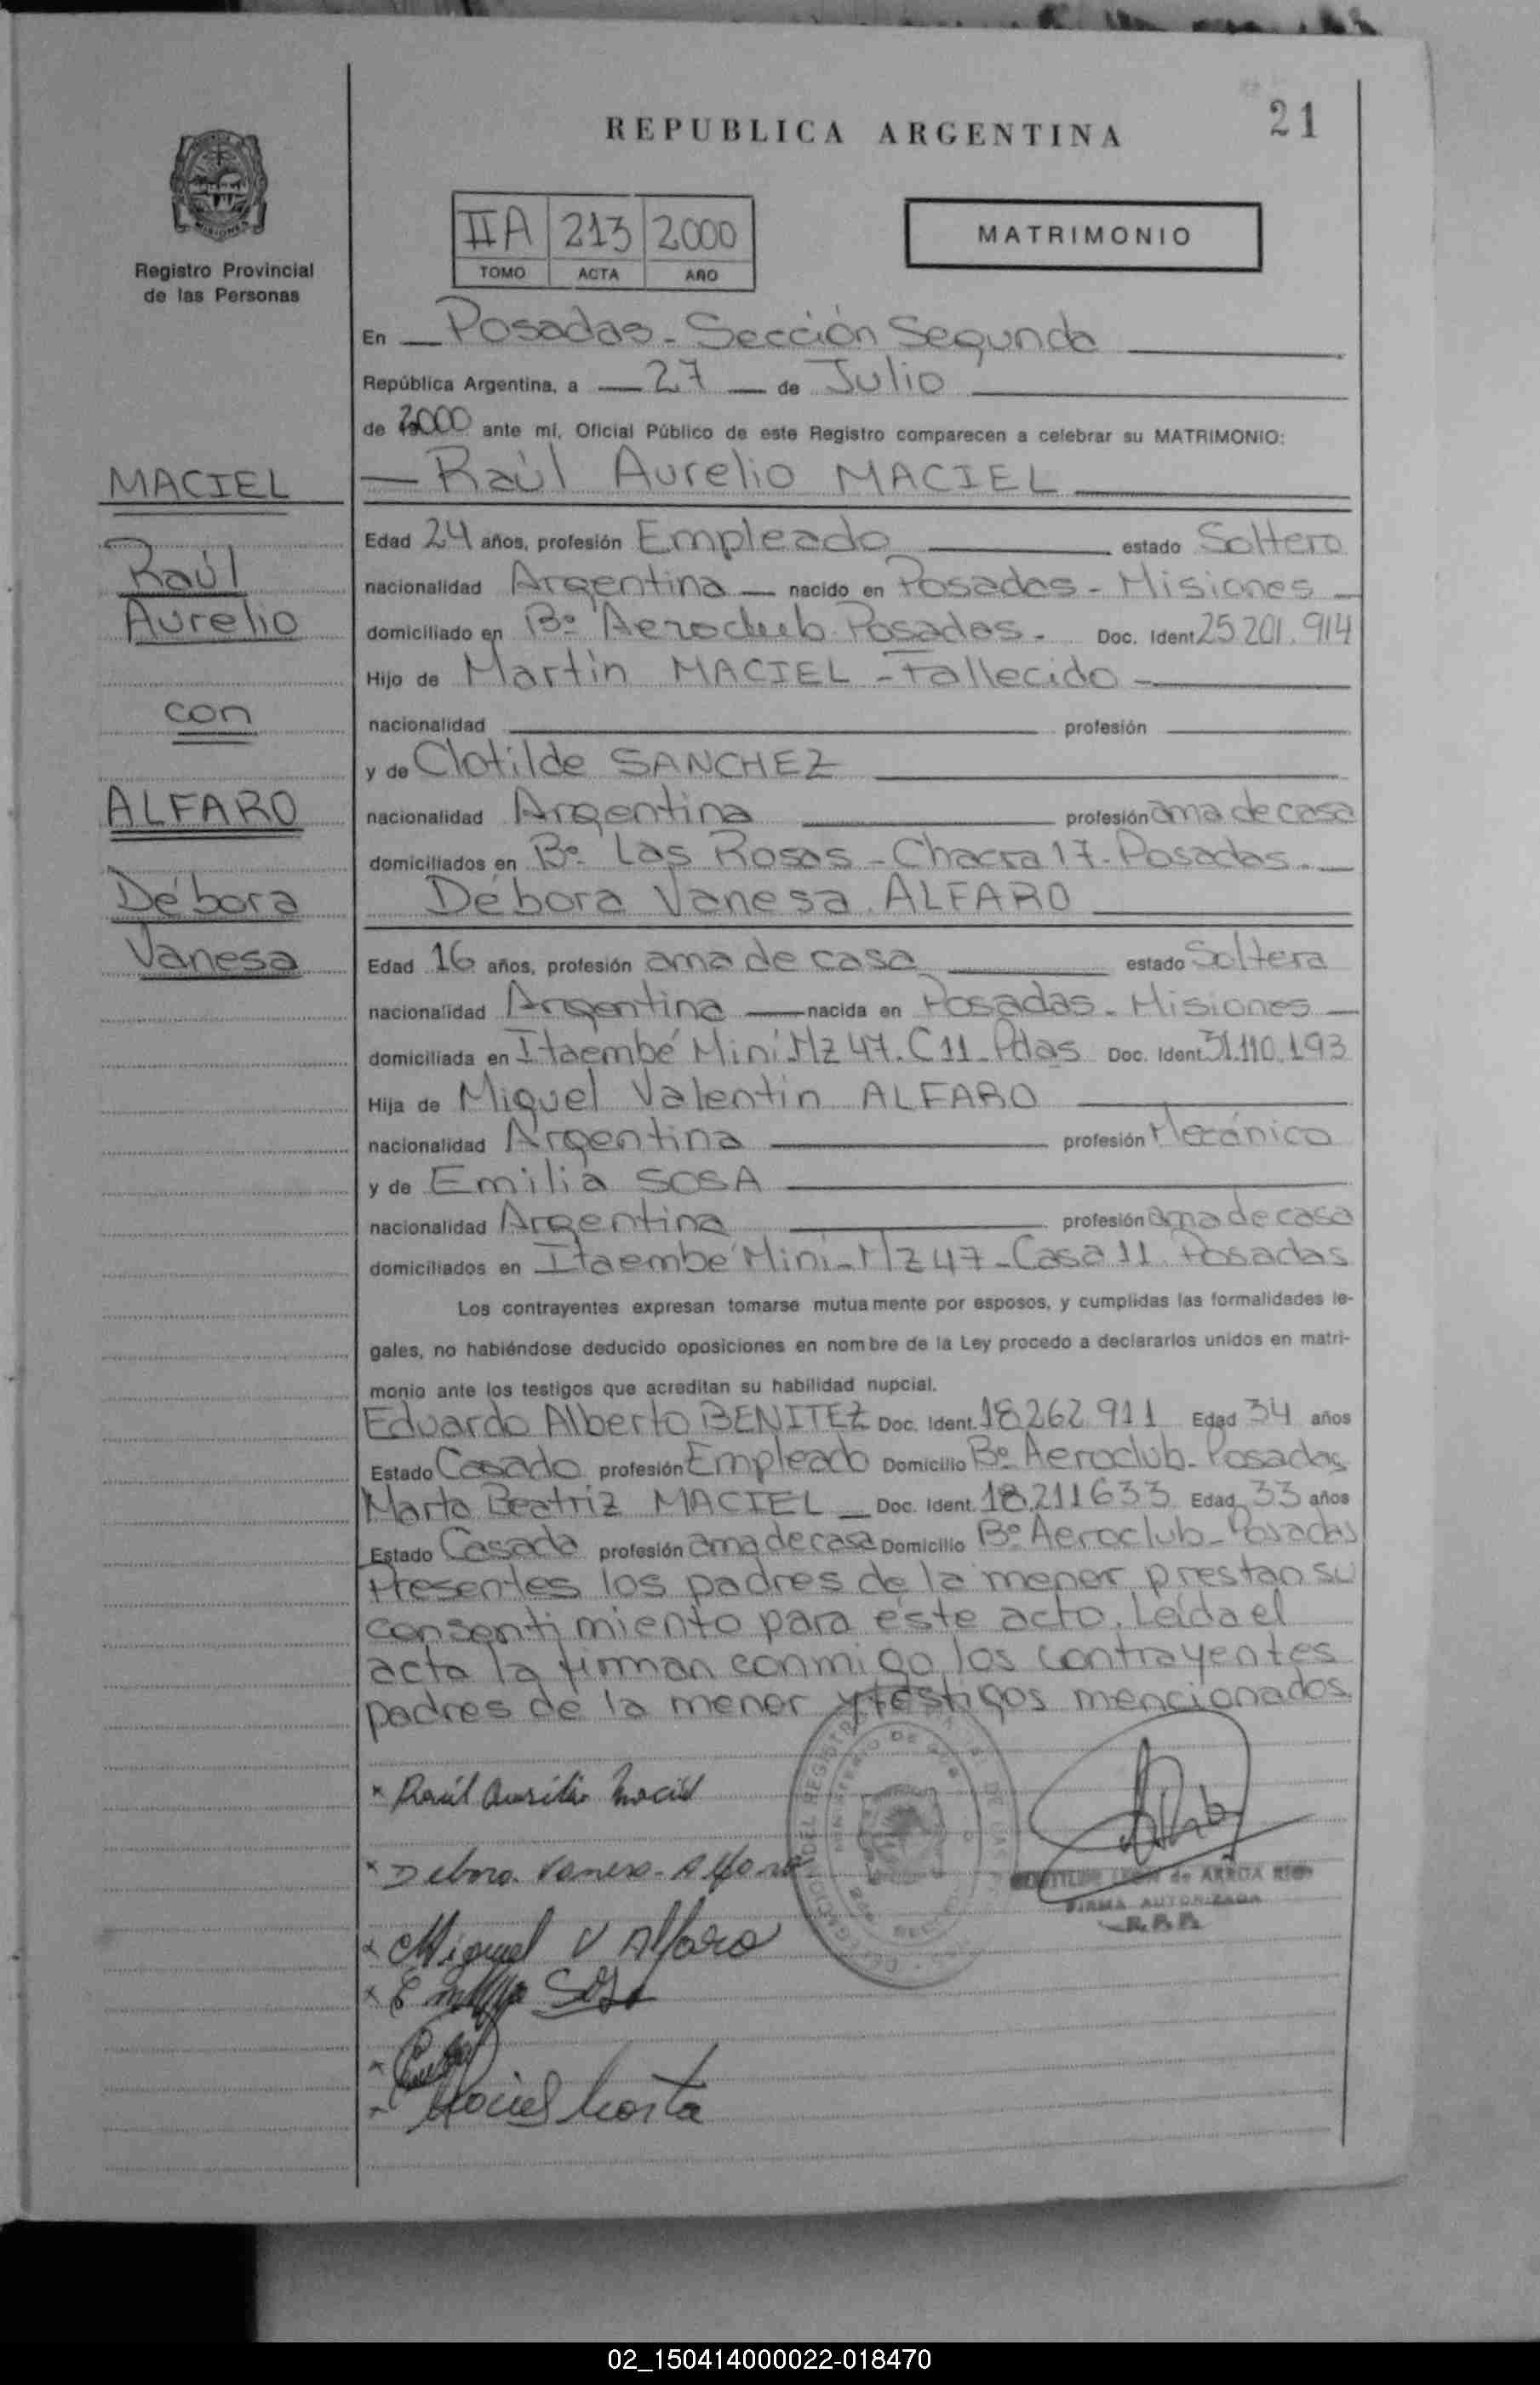 21
REPUBLICA ARGENTINA
Registro Provincial
de las Personas
IIA 213 2000
TOMO ACTA AÑO
MATRIMONIO
En Posadas - Sección Segunda
República Argentina, a 27 de Julio
de 2000 ante mí, Oficial Público de este Registro comparecen a celebrar su MATRIMONIO:
Raúl Aurelio MACIEL
MACIEL
Raúl
Aurelio
con
ALFARO
Débora
Vanesa
Edad 24 años, profesión Empleado estado Soltero
nacionalidad Argentina nacido en Posadas - Misiones
domiciliado en Bº Aeroclub Posadas. Doc. Ident 25.201.914
Hijo de Martín MACIEL - Fallecido
nacionalidad profesión
y de Clotilde SANCHEZ
nacionalidad Argentina profesión ama de casa
domiciliados en Bº Las Rosas - Chacra 17 - Posadas.
Débora Vanesa ALFARO
Edad 16 años, profesión ama de casa estado Soltera
nacionalidad Argentina nacida en Posadas - Misiones
domiciliada en Itaembé Miní Mz 47. C 11 - Pdas Doc. Ident 31.110.193
Hija de Miguel Valentín ALFARO
nacionalidad Argentina profesión Mecánico
y de Emilia SOSA
nacionalidad Argentina profesión ama de casa
domiciliados en Itaembé Miní - Mz 47 - Casa 11. Posadas
Los contrayentes expresan tomarse mutuamente por esposos, y cumplidas las formalidades le-
gales, no habiéndose deducido oposiciones en nombre de la Ley procedo a declararlos unidos en matri-
monio ante los testigos que acreditan su habilidad nupcial.
Eduardo Alberto BENITEZ Doc. Ident. 18.262.911 Edad 34 años
Estado Casado profesión Empleado Domicilio Bº Aeroclub - Posadas
Marta Beatriz MACIEL Doc. Ident. 18.211633 Edad 33 años
Estado Casada profesión ama de casa Domicilio Bº Aeroclub - Posadas
Presentes los padres de la menor prestan su
consentimiento para éste acto. Leída el
acta la firman conmigo los contrayentes
padres de la menor y testigos mencionados.
x Raúl Aurelio Maciel
x Debora Vanesa Alfaro
x Miguel V Alfaro
x Emilia Sosa
Maciel Marta
LEON de ARRUA
FIRMA AUTORIZADA
R.P.P.
02_150414000022-018470